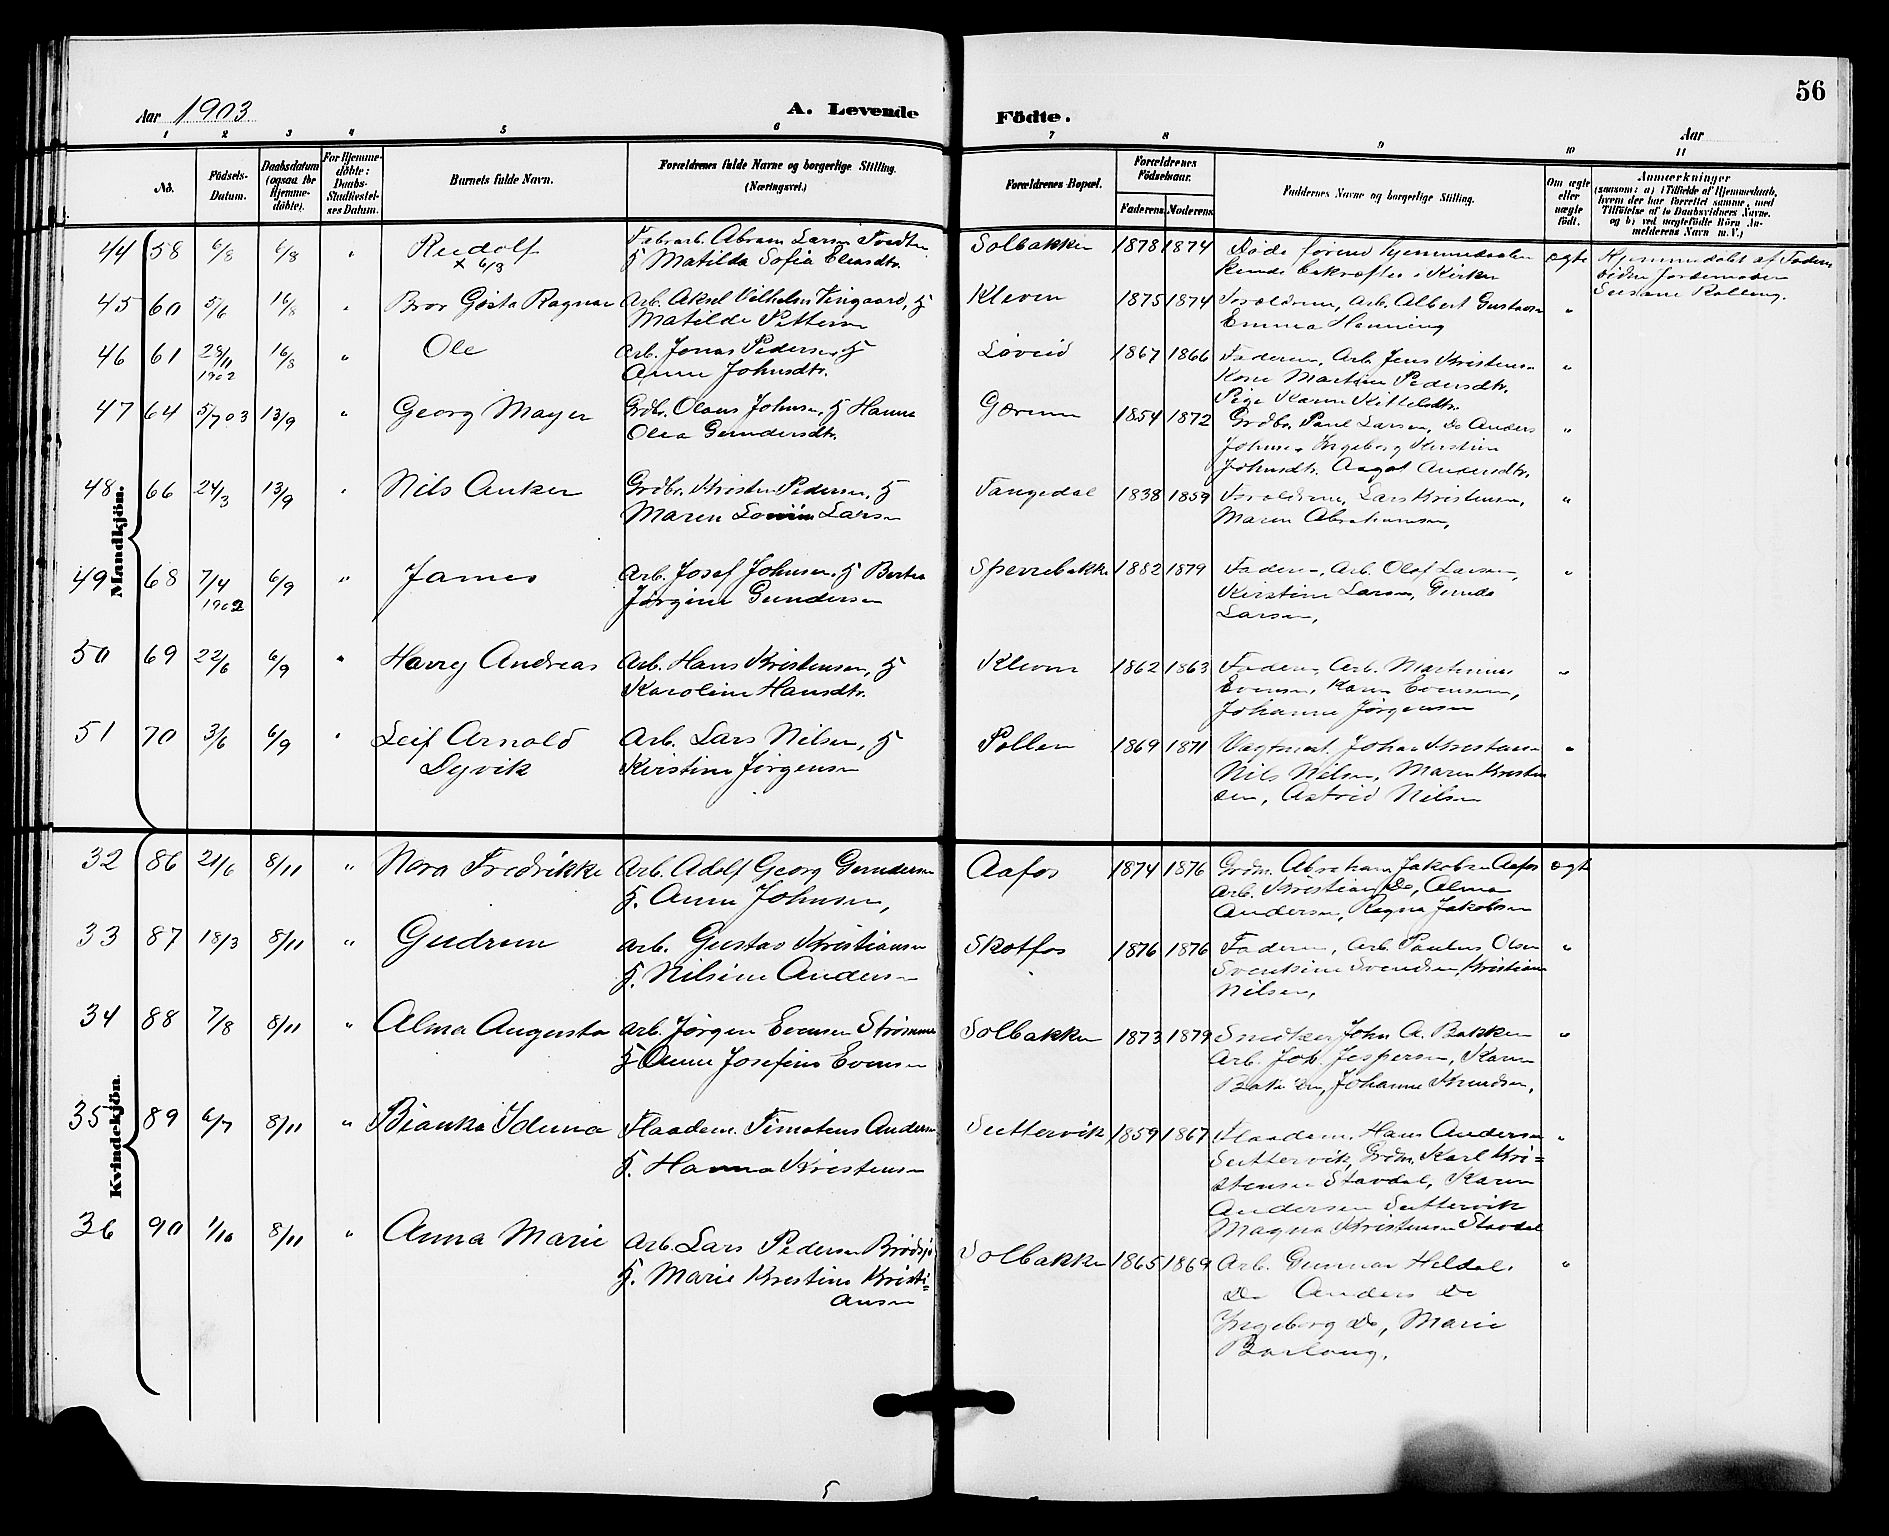 56
Aar 1903
A. Levende
Födte.
Aar
1 2 3 4 5 6 7 8 9 10 11
No.
Födsels-
Datum.
Daabsdatum
(ogsaa for
Hjemme-
döbte).
For Hjemme-
döbte:
Daabs-
Stadfæstel-
ses Datum.
Barnets fulde Navn.
Forældrenes fulde Navne og borgerlige Stilling.
(Næringsvei.)
Forældrenes Bopæl.
Forældrenes
Födselsaar.
Faderens Moderens
Faddernes Navne og borgerlige Stilling.
Om ægte
eller
uægte
födt.
Anmærkninger
(saasom: a) i Tilfælde af Hjemmedaab,
hvem der har forrettet samme, med
Tilföielse af to Daabsvidners Navne,
og b) ved uægtefödte Börn An-
melderens Navn m. V.)
Mandkjön.
44 58 6/8 6/8 " Rudolf
x 6/8
Fabrarb. Abram Larsen Tvedten
H Matilda Sofia Eliasdtr.
Solbakken 1878 1874
Døde førend Hjemmedaaben
kunde bekræftes i Kirken
ægte
Hjemmedøbt af Faderen
Vidne Jordemoder
45 60 5/6 16/8 " Bror Gøsta Ragnar
Arb. Aksel Vilhelm Vingaard, H
Matilde Petterson
Kleven 1875 1874
Forældrene, Arb. Albert Gustavsen
Emma Henning
"
46 61 28/11 1902 16/8 " Ole
Arb. Jonas Pedersen, H
Anne Johnsdtr.
Løveid 1867 1866
Faderen, Arb. Jens Kristensen
Kone Martine Pedersdtr.
Pige Karen Kittelsdtr.
"
47 64 5/7 03 13/9 " Georg Mayer
Grdbr. Olaus Johnsen, H Hanna
Olea Gundersdtr.
1854 1872
Grdbr. Paul Larsen, Do Anders
Johnsen Ingeborg Kirstine
Johnsdtr. Aagot Andersdtr.
"
48 66 24/3 13/9 " Nils Anker
Grdbr. Kristen Pedersen, H
Maren Lovise Larsen
Tangedal 1838 1859
Forældrene, Lars Kristensen,
Maren Abrahamsen,
"
49 68 7/4 1902 6/9 " James
Arb. Josef Johnsen, H Berta
Jørgine Gundersen
Sperrebakke 1882 1879
Faderen, Arb. Olaf Larsen,
Kirstine Larsen, Gunda
Larsen,
"
50 69 22/6 6/9 " Harry Andreas
Arb. Hans Kristensen, H
Karoline Hansdtr.
Kleven 1862 1863
Faderen, Arb. Martinius
Evensen, Karen Evensen,
Johanne Jørgensen
"
51 70 3/6 6/9 " Leif Arnold
Dyvik
Arb. Lars Nilsen, H
Kirstine Jørgensen
Pollen 1869 1871
Vagtmest. Johan Kristensen
Nils Nilsen, Maren Kristen
sen, Astrid Nilsen
"
Kvindekjön.
32 86 21/6 8/11 " Nora Fredrikke
Arb. Adolf Georg Gundersen
H. Anne Johnsen,
Aafos 1874 1876
Grdm. Abraham Jakobsen Aafos
Arb. Kristian Do, Alma
Andersen, Ragna Jakobsen
ægte
33 87 18/3 8/11 " Gudrun
Arb. Gustav Kristiansen
H. Nilsine Andersen
Skotfos 1876 1876
Faderen, Arb. Paulus Olsen
Svenkine Svendsen, Kristian
Nilsen,
"
34 88 7/8 8/11 " Alma Augusta
Arb. Jørgen Evensen Strømmen
H Anne Josefine Evensen
Solbakken 1873 1879
Snedker John A. Bakken
Arb. Job Jespersen, Karen
Johanne Knudsen,
"
35 89 6/7 8/11 " Bianka Iduna
Flaadem. Timoteus Andersen
H. Hanna Kristensen
Suttervik 1859 1867
Flaadem. Hans Andersen
Suttervik, Grdm. Karl Kri=
stensen Stavdal, Karen
Andersen Suttervik
Magna Kristensen Stavdal
"
36 90 1/10 8/11 " Anna Marie
Arb. Lars Pedersen Brødsjø
H. Marie Kirstine Kristi=
ansen
Solbakken 1865 1869
Arb. Gunnar Heldal.
Do Anders Do
Ingeborg Do, Marie
Barlaug.
"
5